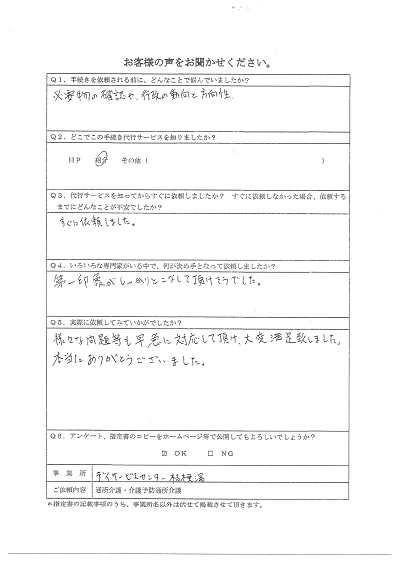 お客様の声をお聞かせください。
Q1．手続きを依頼される前に、どんなことで悩んでいましたか？
必要物の確認や、行政の動向と方向性。
Q2．どこでこの手続き代行サービスを知りましたか？
HP 紹介 その他（ ）
Q3．代行サービスを知ってからすぐに依頼しましたか？ すぐに依頼しなかった場合、依頼する
までにどんなことが不安でしたか？
すぐに依頼しました。
Q4．いろいろな専門家がいる中で、何が決め手となって依頼しましたか？
第一印象がしっかりとこなして頂けそうでした。
Q5．実際に依頼してみていかがでしたか？
様々な問題等も早急に対応して頂け、大変満足致しました。
本当にありがとうございました。
Q6．アンケート、指定書のコピーをホームページ等で公開してもよろしいでしょうか？
☑ OK □ NG
事業所 デイサービスセンター
ご依頼内容 通所介護・介護予防通所介護
*指定書の記載事項のうち、事業所名以外は伏せて掲載させて頂きます。